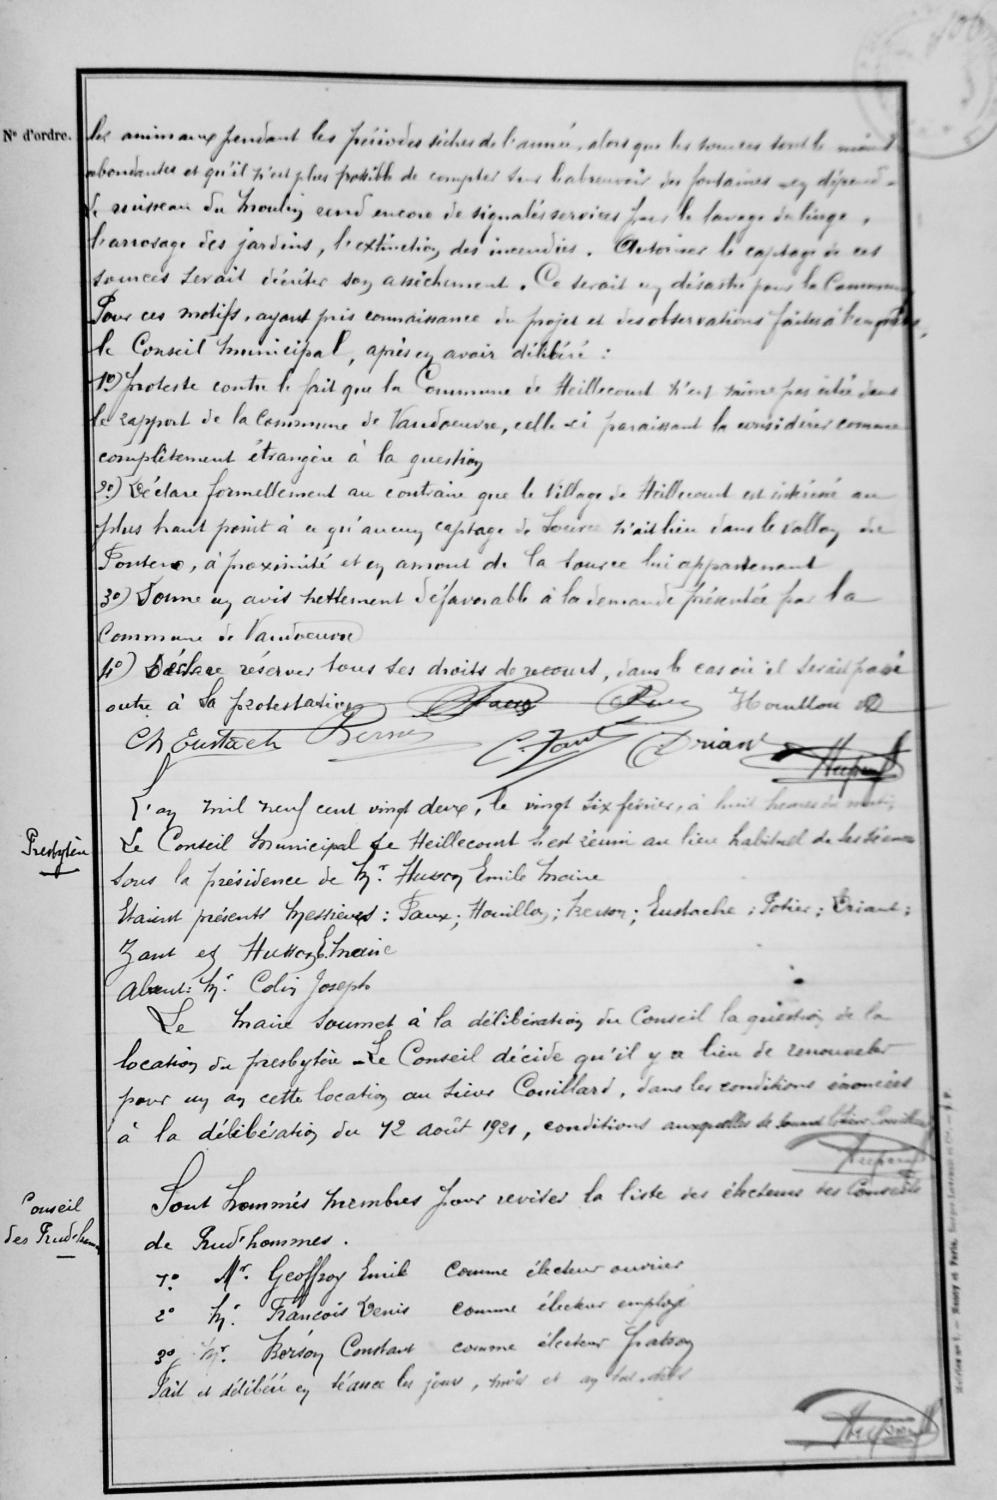 106
N° d'ordre.
les animaux pendant les périodes sèches de l'année, alors que les sources sont le moins
abondantes et qu'il n'est plus possible de compter sur l'abreuvoir des fontaines en dépend
Le ruisseau du Moulin rend encore de signalés services pour le lavage du linge,
l'arrosage des jardins, l'extinction des incendies. Autoriser le captage de ces
sources serait décréter son assèchement. Ce serait un désastre pour la Commune
Pour ces motifs, ayant pris connaissance du projet et des observations faites à l'enquête,
le Conseil Municipal, après en avoir délibéré :
1°) Proteste contre le fait que la Commune de Heillecourt n'est même pas citée dans
le rapport de la Commune de Vandoeuvre, celle-ci paraissant la considérer comme
complètement étrangère à la question
2°) Déclare formellement au contraire que le village de Heillecourt est intéressé au
plus haut point à ce qu'aucun captage de source n'ait lieu dans le vallon de
Fonteno, à proximité et en amont de la source lui appartenant
3°) Donne un avis nettement défavorable à la demande présentée par la
Commune de Vandoeuvre
4°) Déclare réserver tous ses droits de recours, dans le cas où il serait passé
outre à sa protestation Houillon
Ch Eustach Zant Driant
L'an mil neuf cent vingt deux, le vingt six février, à huit heures du matin
Presbytère
Le Conseil Municipal de Heillecourt s'est réuni au lieu habituel de ses séances
sous la présidence de Mr Husson Emile Maire
Etaient présents Messieurs : Faux ; Houillon ; Berson ; Eustache ; Potier ; Driant ;
Zant et Husson E. Maire
Absent : Mr Colin Joseph
Le Maire soumet à la délibération du Conseil la question de la
location du presbytère - Le Conseil décide qu'il y a lieu de renouveler
pour un an cette location au sieur Couillard, dans les conditions énoncées
à la délibération du 12 août 1921, conditions auxquelles se soumet le sieur Couillard
Conseil
des Prud'hommes
Sont nommés membres pour reviser la liste des électeurs des Conseils
de Prud'hommes.
1° Mr. Geoffroy Emile comme électeur ouvrier
2° Mr. François Denis comme électeur employé
3° Mr. Berson Constant comme électeur patron
Fait et délibéré en séance les jour, mois et an sus-dits